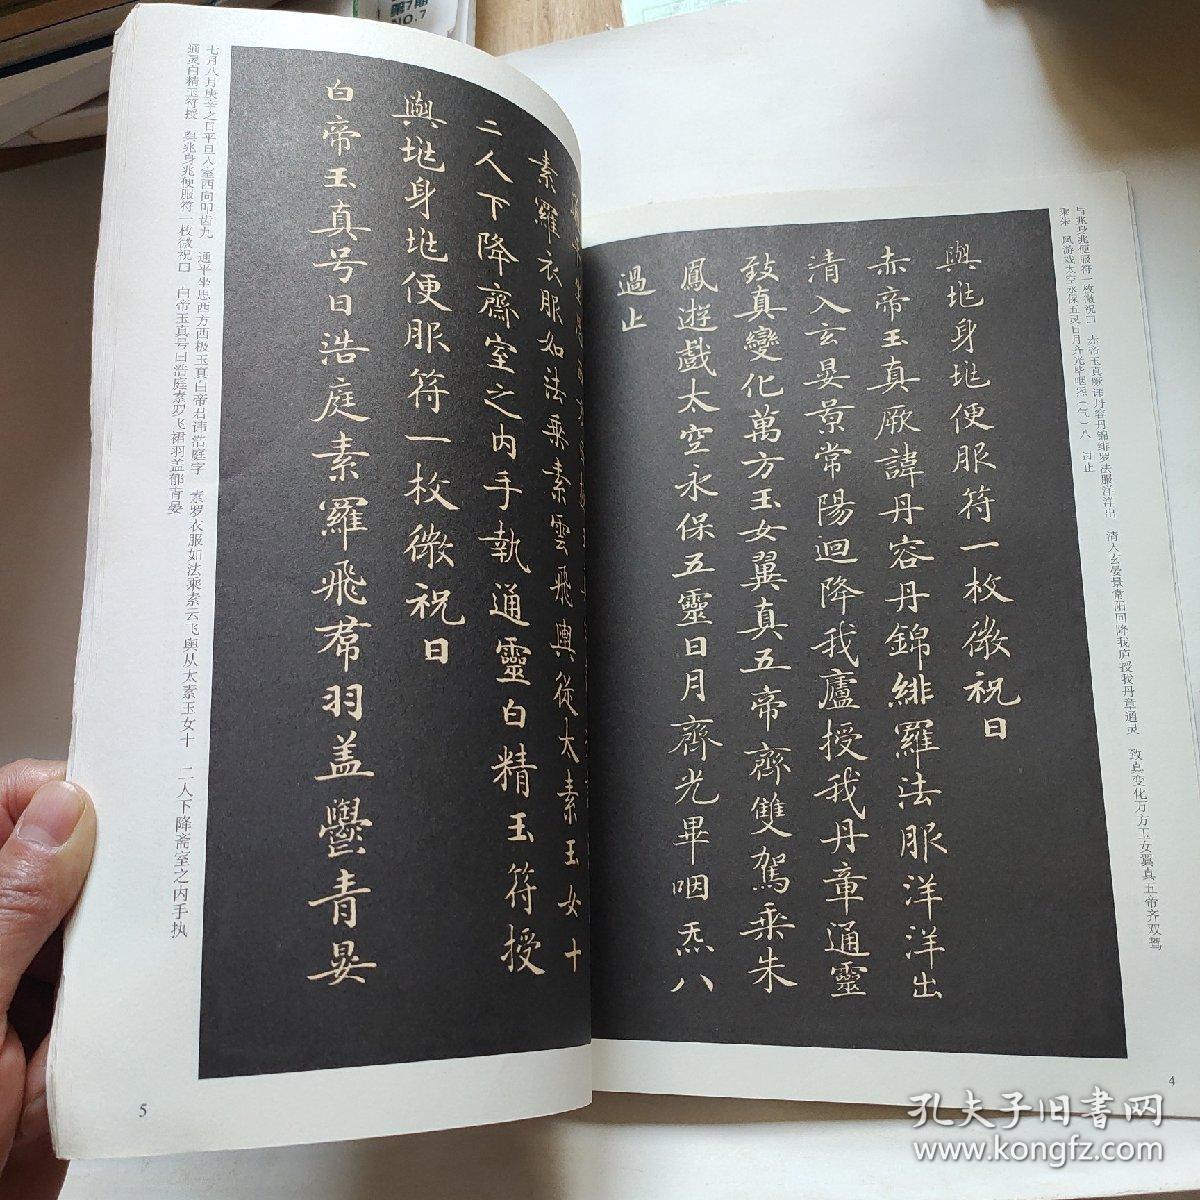 與垗身垗便服符一枚微祝曰
赤帝玉真厥諱丹容丹錦緋羅法服洋洋出
清入玄晏景常陽迴降我廬授我丹章通靈
致真變化萬方玉女翼真五帝齊雙駕乘朱
鳳遊戲太空永保五靈日月齊光畢咽炁八
過止
与兆身兆便服符一枚微祝曰 赤帝玉真厥讳丹容丹锦绯罗法服洋洋出 清入玄晏景常阳回降我庐授我丹章通灵 致真变化万方玉女翼真五帝齐双驾
乘朱 凤游戏太空永保五灵日月齐光毕咽炁(气)八 过止
4
素羅衣服如法乘素雲飛輿從太素玉女十
二人下降齋室之内手執通靈白精玉符授
與垗身垗便服符一枚微祝曰
白帝玉真号曰浩庭素羅飛帬羽盖鬱青晏
七月八月庚辛之日平旦入室西向叩齿九 通平坐思西方西极玉真白帝君讳浩庭字 素罗衣服如法乘素云飞舆从太素玉女十 二人下降斋室之内手执
通灵白精玉符授 与兆身兆便服符一枚微祝曰 白帝玉真号曰浩庭素罗飞裙羽盖郁青晏
5
第7期
NO.7
孔夫子旧书网
www.kongfz.com